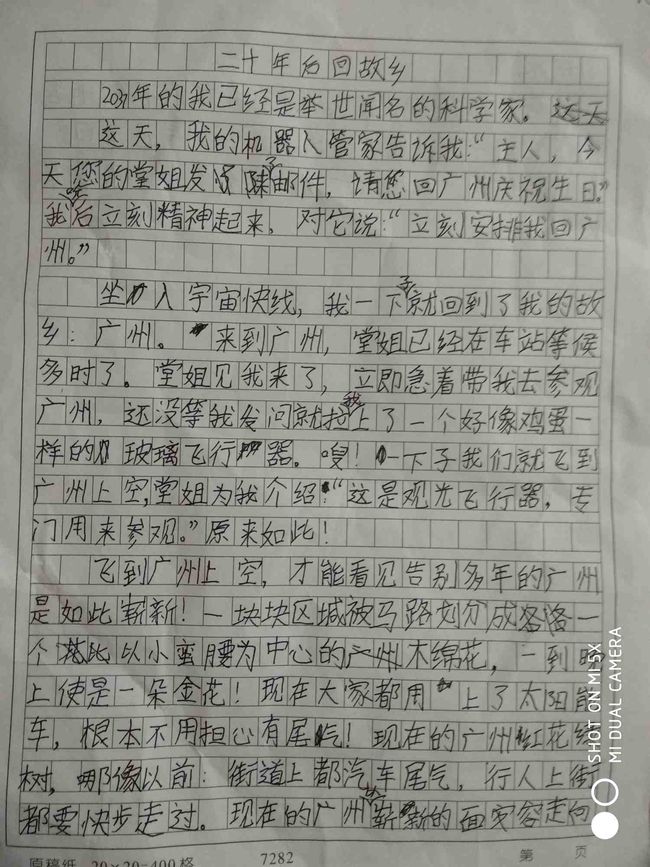 二十年后回故乡
2039年的我已经是举世闻名的科学家。
这天，我的机器人管家告诉我：“主人，今
天您的堂姐发了邮件，请您回广州庆祝生日。”
我听后立刻精神起来，对它说：“立刻安排我回广
州。”
坐入宇宙快线，我一下子就回到了我的故
乡：广州。来到广州，堂姐已经在车站等候
多时了。堂姐见我来了，立即急着带我去参观
广州，还没等我发问就拉我上了一个好像鸡蛋一
样的玻璃飞行器。嗖！一下子我们就飞到
广州上空，堂姐为我介绍：“这是观光飞行器，专
门用来参观。”原来如此！
飞到广州上空，才能看见告别多年的广州
是如此崭新！一块块区域被马路划分成一
个以小蛮腰为中心的广州木棉花，一到晚
上使是一朵金花！现在大家都用上了太阳能
车，根本不用担心有尾气！现在的广州红花绿
树，哪像以前：街道上都汽车尾气，行人上街
都要快步走过。现在的广州以崭新的面容走向
原稿纸 20×20=400格 7282 第 页
SHOT ON MI 5X
MI DUAL CAMERA